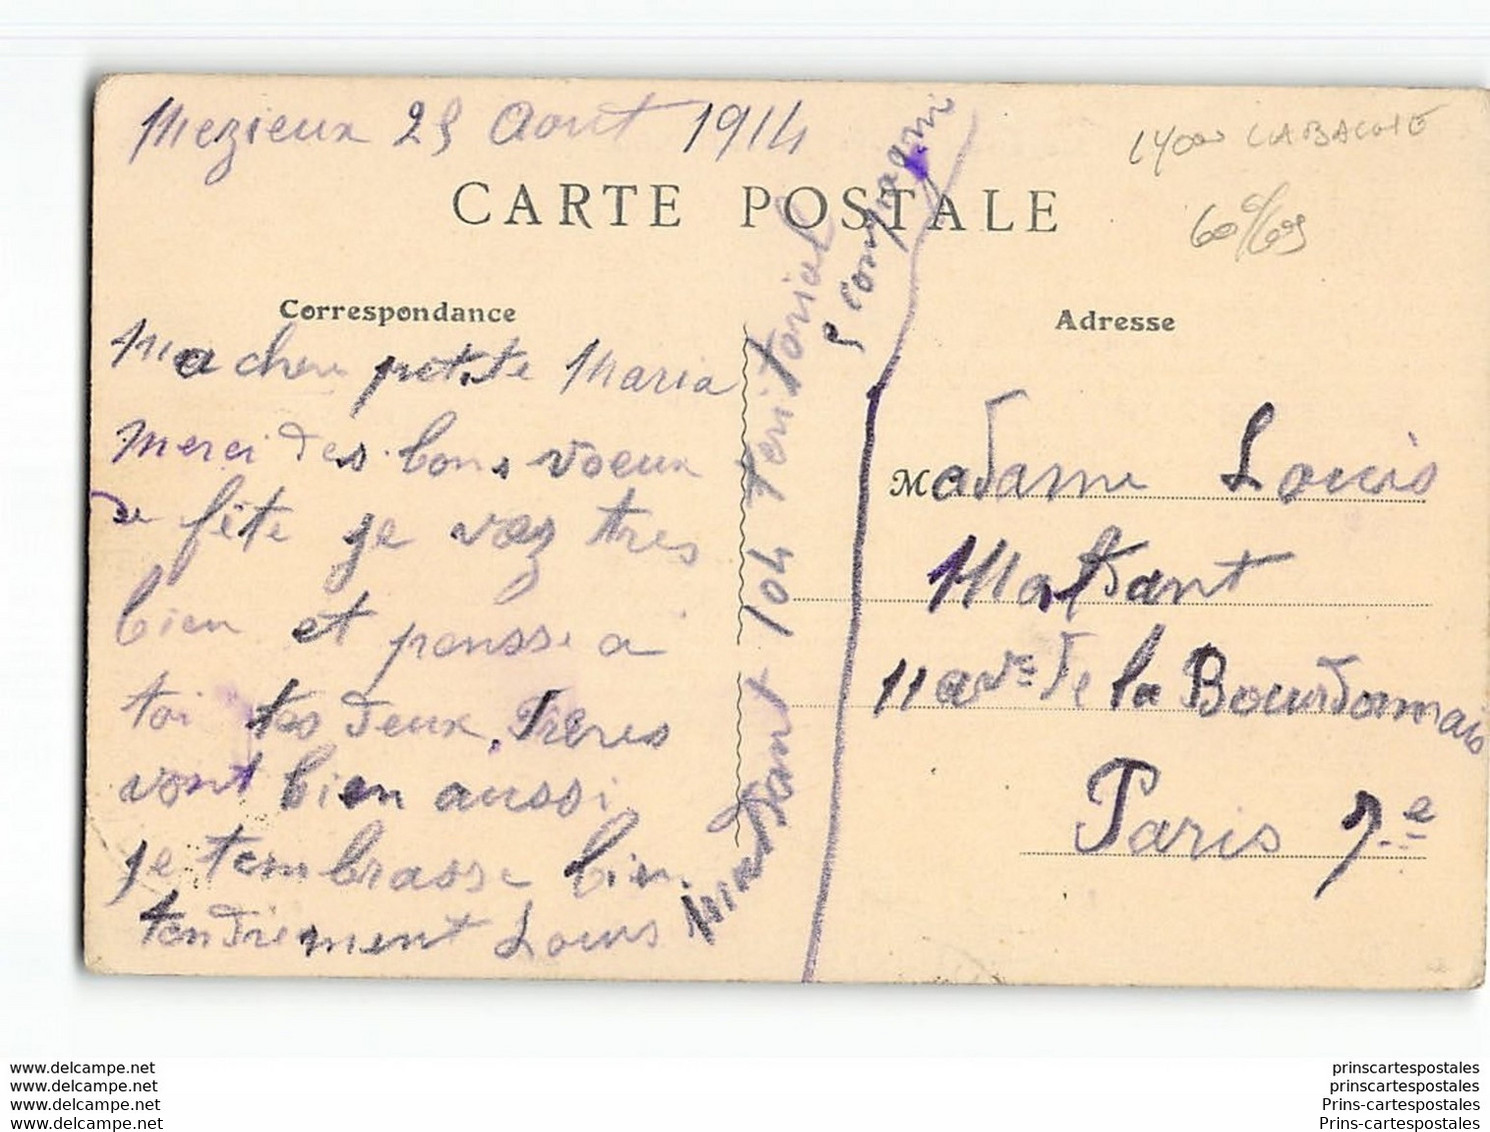 Mezieux 25 Aout 1914
CARTE POSTALE
Correspondance
Ma cher petite Maria
merci des bons voeux
de fête je vez tres
bien et pensse a
toi tes deux Frères
vont bien aussi
je tembrasse bien
tendriement Louis
104 Teritorial
5 compagni
Adresse
Madame Louis
11 ave de la Bourdonnais
Paris 7e
www.delcampe.net
www.delcampe.net
www.delcampe.net
www.delcampe.net
prinscartespostales
prinscartespostales
Prins-cartespostales
Prins-cartespostales